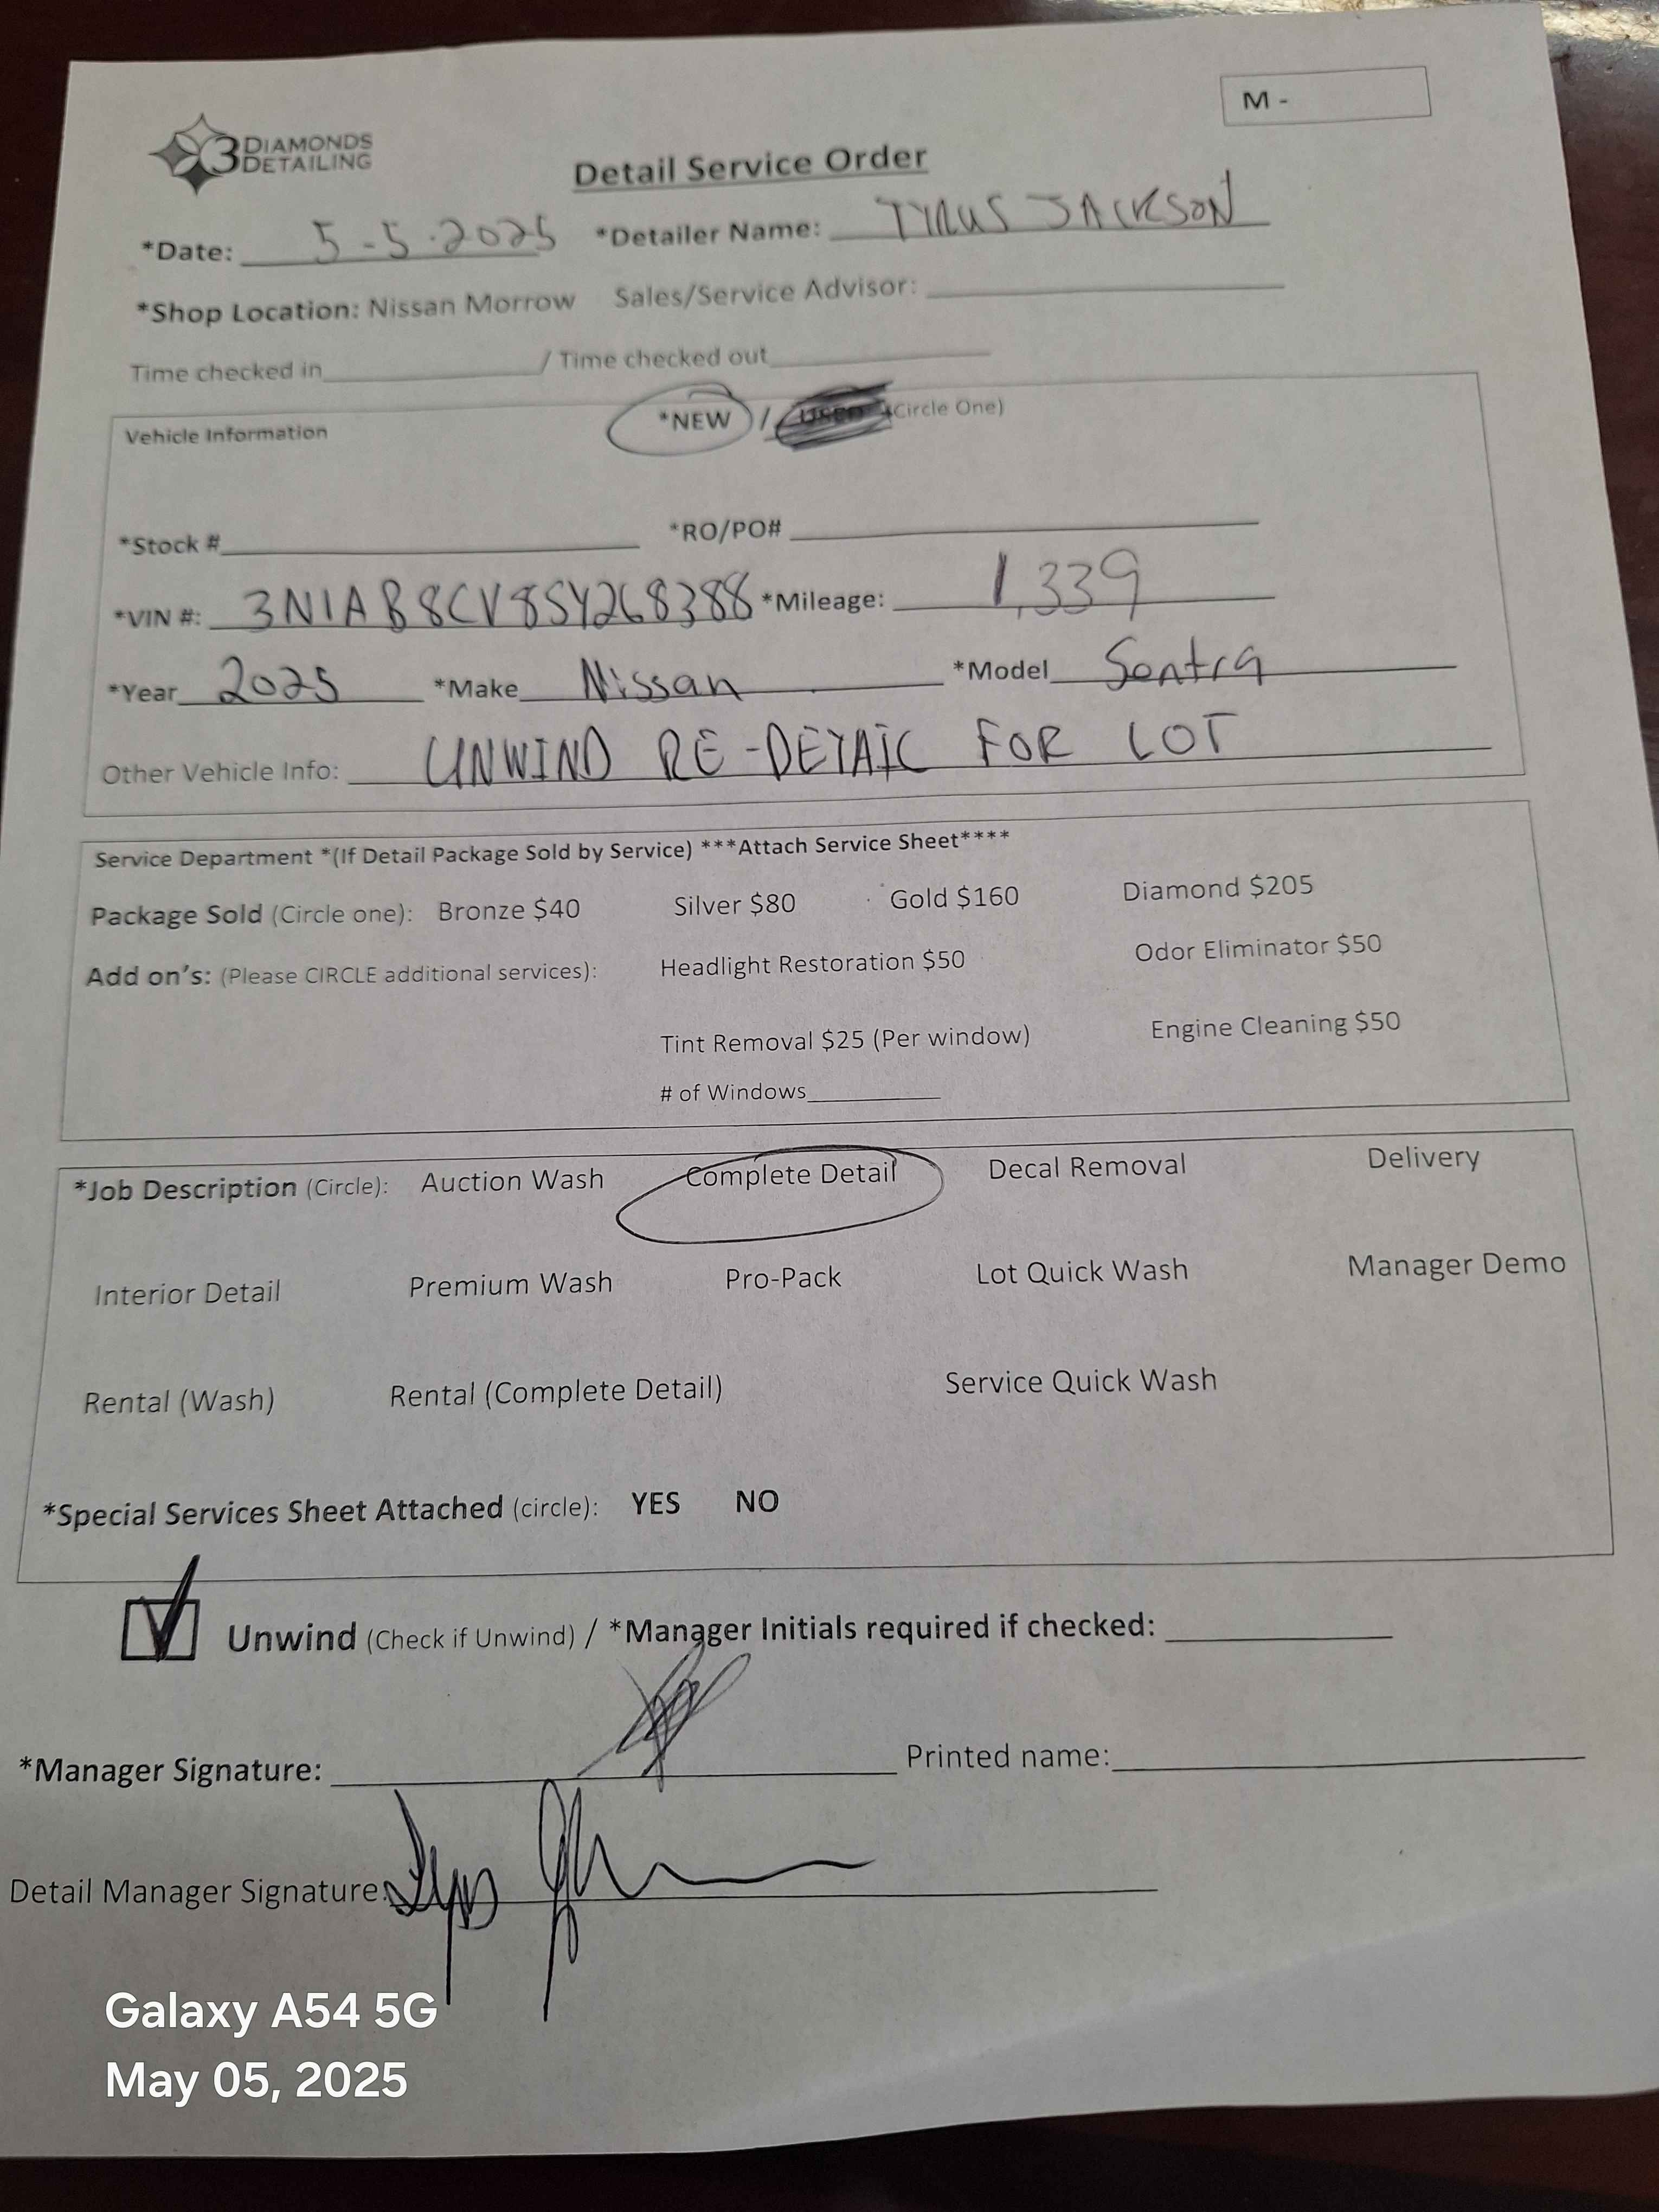 M -
3 DIAMONDS DETAILING
Detail Service Order
*Date: 5-5-2025 *Detailer Name: TYRUS JACKSON
*Shop Location: Nissan Morrow Sales/Service Advisor:
Time checked in / Time checked out
Vehicle Information *NEW / USED (Circle One)
*Stock # *RO/PO#
*VIN #: 3N1AB8CV8SY268388 *Mileage: 1,339
*Year 2025 *Make Nissan *Model Sentra
Other Vehicle Info: UNWIND RE-DETAIL FOR LOT
Service Department *(If Detail Package Sold by Service) ***Attach Service Sheet****
Package Sold (Circle one): Bronze $40 Silver $80 Gold $160 Diamond $205
Add on's: (Please CIRCLE additional services): Headlight Restoration $50 Odor Eliminator $50
Tint Removal $25 (Per window) Engine Cleaning $50
# of Windows
*Job Description (Circle): Auction Wash Complete Detail Decal Removal Delivery
Interior Detail Premium Wash Pro-Pack Lot Quick Wash Manager Demo
Rental (Wash) Rental (Complete Detail) Service Quick Wash
*Special Services Sheet Attached (circle): YES NO
Unwind (Check if Unwind) / *Manager Initials required if checked:
*Manager Signature: Printed name:
Detail Manager Signature:
Galaxy A54 5G
May 05, 2025